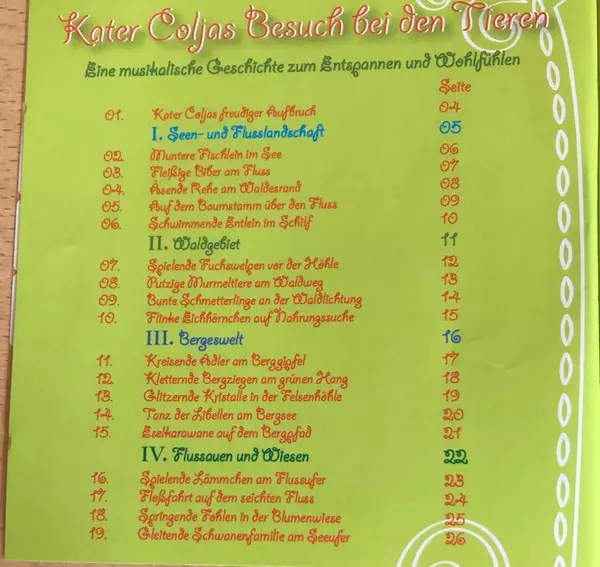 Kater Coljas Besuch bei den Tieren
Eine musikalische Geschichte zum Entspannen und Wohlfühlen
Seite
01. Kater Coljas freudiger Aufbruch 04
I. Seen- und Flusslandschaft 05
02. Muntere Fischlein im See 06
03. Fleißige Biber am Fluss 07
04. Äsende Rehe am Waldesrand 08
05. Auf dem Baumstamm über den Fluss 09
06. Schwimmende Entlein im Schilf 10
II. Waldgebiet 11
07. Spielende Fuchswelpen vor der Höhle 12
08. Putzige Murmeltiere am Waldweg 13
09. Bunte Schmetterlinge an der Waldlichtung 14
10. Flinke Eichhörnchen auf Nahrungssuche 15
III. Bergeswelt 16
11. Kreisende Adler am Berggipfel 17
12. Kletternde Bergziegen am grünen Hang 18
13. Glitzernde Kristalle in der Felsenhöhle 19
14. Tanz der Libellen am Bergsee 20
15. Eselkarawane auf dem Bergpfad 21
IV. Flussauen und Wiesen 22
16. Spielende Lämmchen am Flussufer 23
17. Floßfahrt auf dem seichten Fluss 24
18. Springende Fohlen in der Blumenwiese 25
19. Gleitende Schwanenfamilie am Seeufer 26